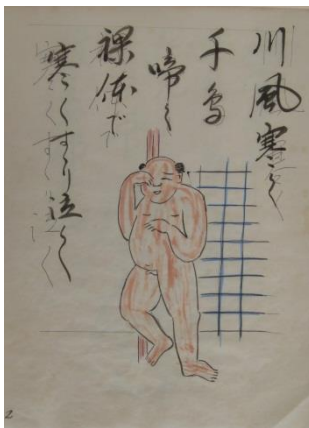 川風寒く
千鳥
啼く
裸体で
寒くすゝり泣く
2